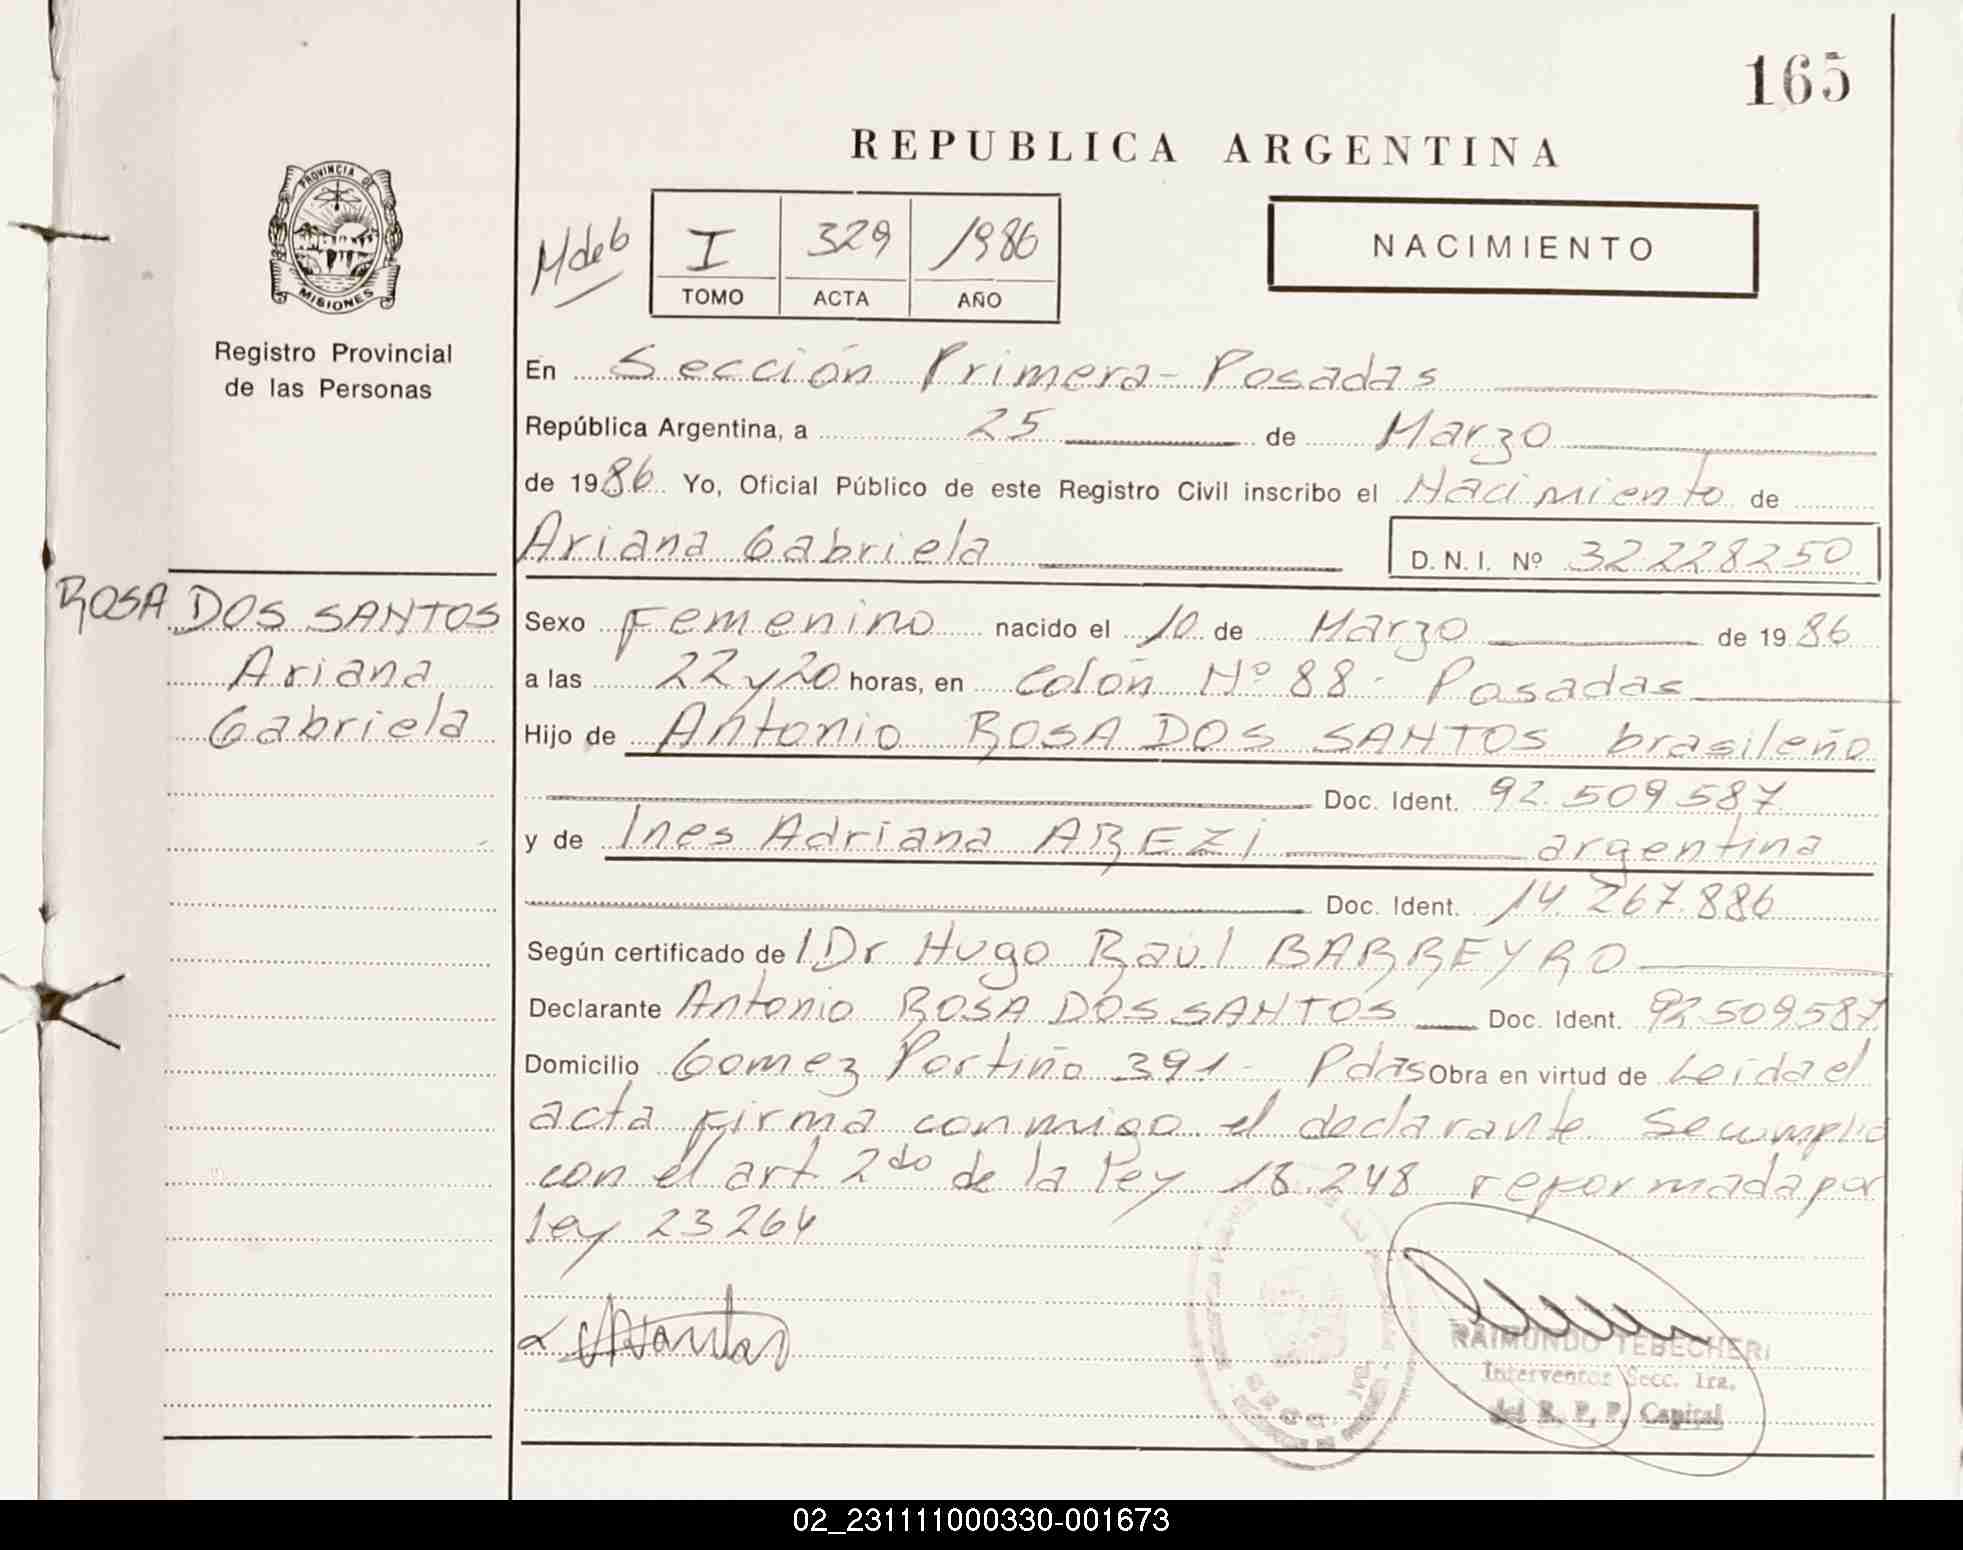 165
REPUBLICA ARGENTINA
PROVINCIA DE
MISIONES
Registro Provincial
de las Personas
ROSA DOS SANTOS
Ariana
Gabriela
M de 6
I 329 1986
TOMO ACTA AÑO
NACIMIENTO
En Sección Primera - Posadas
República Argentina, a 25 de Marzo
de 1986 Yo, Oficial Público de este Registro Civil inscribo el Nacimiento de
Ariana Gabriela D. N. I. Nº 32.228250
Sexo Femenino nacido el 10 de Marzo de 1986
a las 22 y 20 horas, en Colón Nº 88 - Posadas
Hijo de Antonio ROSA DOS SANTOS brasileño
Doc. Ident. 92.509.587
y de Ines Adriana AREZI argentina
Doc. Ident. 14.267.886
Según certificado de l Dr Hugo Raúl BARREYRO
Declarante Antonio ROSA DOS SANTOS Doc. Ident. 92.509.587
Domicilio Gomez Portiño 391 - Pdas Obra en virtud de Leida el
acta firma conmigo el declarante Se cumplio
con el art 2do de la Ley 18.248 reformada por
ley 23264
RAIMUNDO TEBECHERI
Interventor Secc. 1ra.
del R. P. P. Capital
02_231111000330-001673